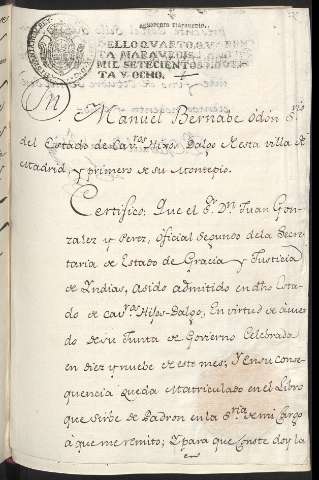 SELLO QVARTO, QVAREN
TA MARAVEDIS,
MIL SETECIENTOS Y OCHEN
TA Y OCHO.
Dn. Manuel Bernabe Odòn, S.rio
del Estado de Cav.ros Hijos Dalgo de esta villa de
Madrid, y primero de su Montepio.
Certifico: Que el S.r D.n Juan Gon-
zalez y Perez, oficial Segundo de la Secre-
taria de Estado de Gracia y Justicia
de Yndias, asido admitido en dho Esta-
do de Cav.os Hijos-Dalgo, En virtud de acuer
do de su Junta de Govierno Celebrada
en diez y nuebe de este mes; Y en su conse-
quencia queda Matriculado en el Libro
que sirbe de Padron en la S.ria de mi Cargo
à que me remito; Y para que Conste doy la